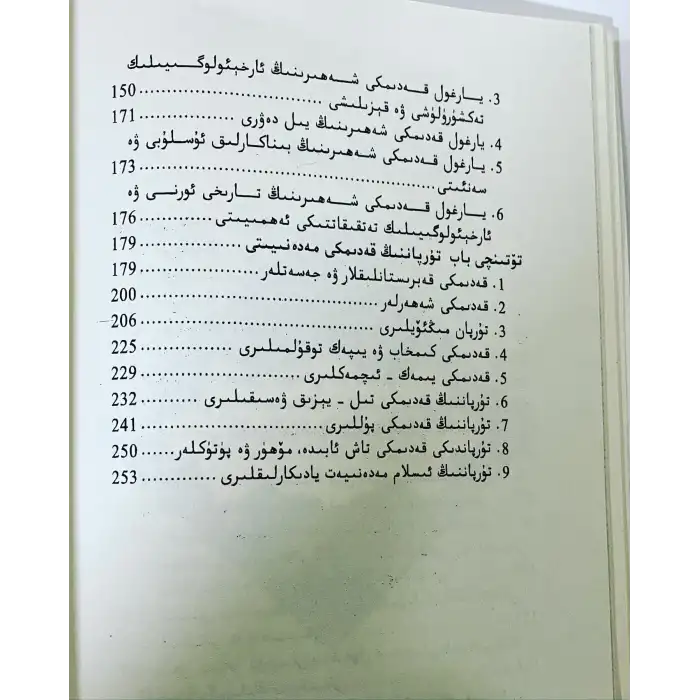 3. يـــارغول قـــەدىمكى شـــەھىرىنىڭ ئارخېئولوگـــىيىلىك
تەكشۈرۈلۈشى ۋە قېزىلىشى ................................ 150
4. يارغول قەدىمكى شەھىرىنىڭ يىل دەۋرى ................ 171
5. يـارغول قـەدىمكى شەھىرىنىڭ بىناكارلىق ئۇسلۇبى ۋە
سەنئىتى ...................................................... 173
6. يـــارغول قـــەدىمكى شـــەھىرىنىڭ تـــارىخى ئورنـــى ۋە
ئارخېئولوگىيىلىك تەتقىقاتتىكى ئەھمىيىتى ............ 176
تۆتىنچى باب تۇرپاننىڭ قەدىمكى مەدەنىيىتى ................ 179
1. قەدىمكى قەبرىستانلىقلار ۋە جەسەتلەر .................... 179
2. قەدىمكى شەھەرلەر ........................................ 200
3. تۇرپان مىڭئۆيلىرى ........................................ 206
4. قەدىمكى كىمخاب ۋە يىپەك توقۇلمىلىرى ................ 225
5. قەدىمكى يىمەك - ئىچمەكلىرى ............................ 229
6. تۇرپاننىڭ قەدىمكى تىل - يېزىق ۋەسىقىلىرى .......... 232
7. تۇرپاننىڭ قەدىمكى پۇللىرى ............................... 241
8. تۇرپاندىكى قەدىمكى تاش ئابىدە، مۆھۈر ۋە پۈتۈكلەر ...... 250
9. تۇرپاننىڭ ئىسلام مەدەنىيەت يادىكارلىقلىرى ............. 253